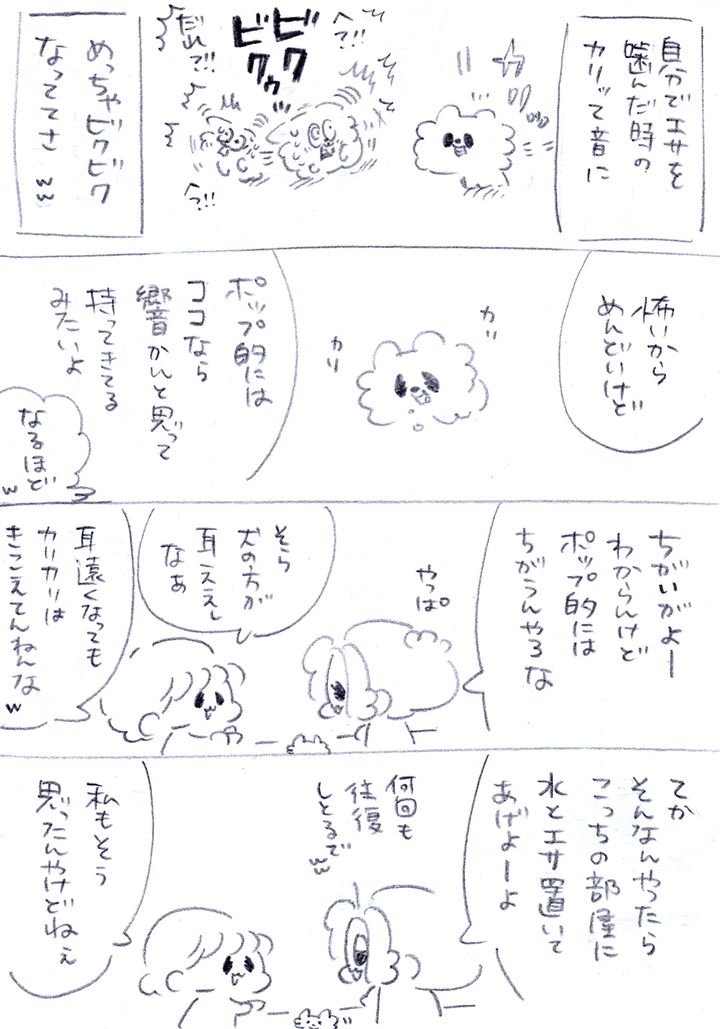 自分でエサを
噛んだ時の
カリッて音に
へ?!!
ビビ
クゥク
だれ?!!
へ?!!
めっちゃビクビク
なっててさ
ww
怖いから
めんどいけど
カリ
カリ
ポップ的には
ココなら
響かんと思って
持ってきてる
みたいよ
なるほど
w
ちがいがよー
わからんけど
ポップ的には
ちがうんやろな
やっぱ。
そら
犬の方が
耳ええし
なあ
耳遠くなっても
カリカリは
きこえてんねんな
w
てか
そんなんやったら
こっちの部屋に
水とエサ置いて
あげよーよ
何回も
往復
しとるで
ww
私もそう
思ったんやけどねぇ